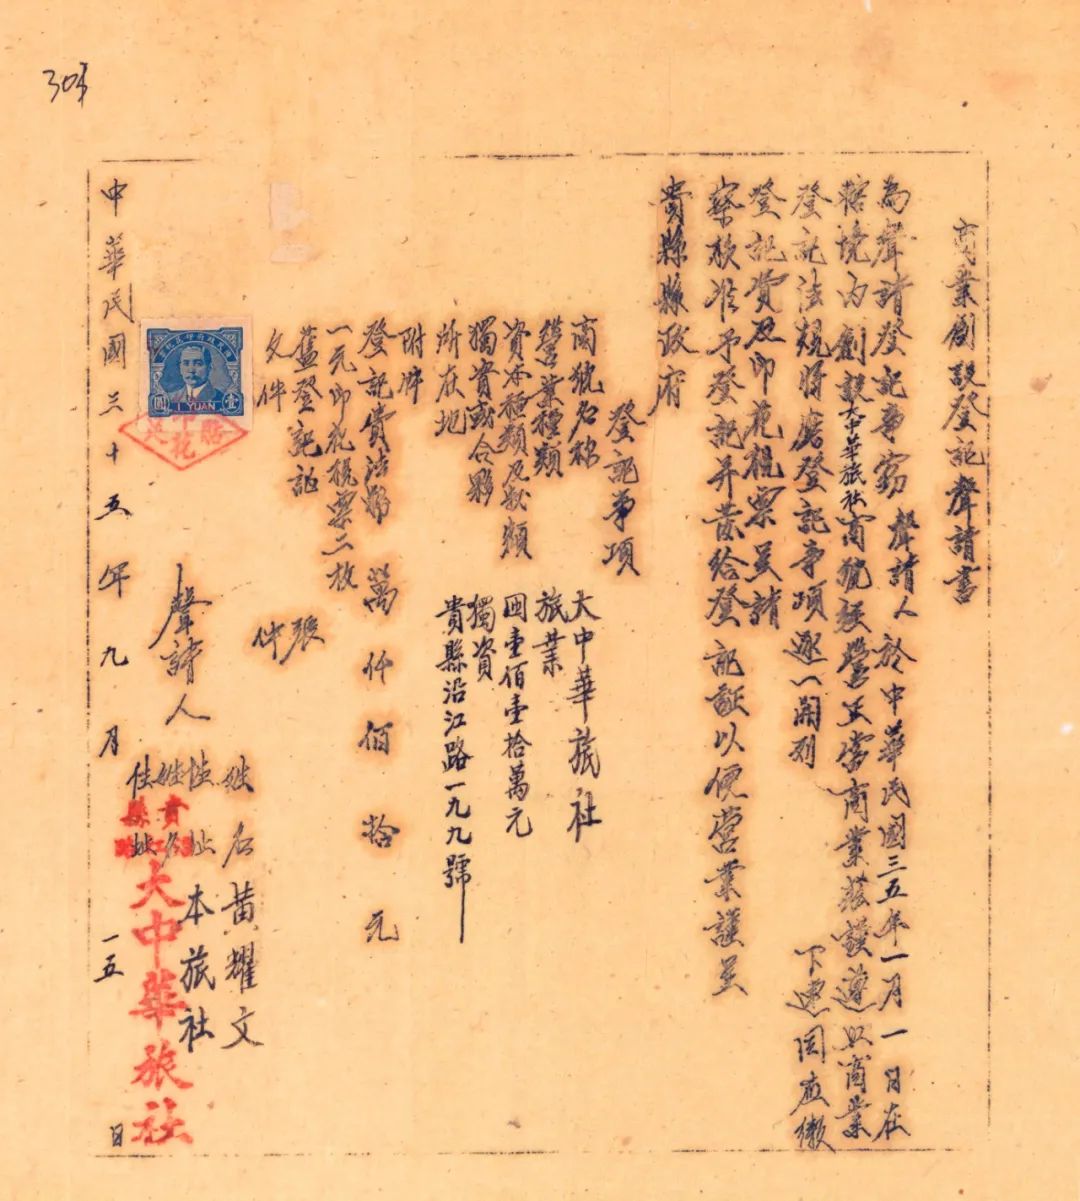 商業創設登記聲請書
為聲請登記事窃聲請人於中華民國三五年一月一日在
轄境內創設大中華旅社商號經營正當商業茲謹遵照商業
登記法規將應登記事項逐一開列下連同應繳
登記費及印花稅票呈請
察核准予登記并發給登記証以便營業謹呈
貴縣縣政府
登記事項
商號名稱 大中華旅社
營業種類 旅業
資本種類及數額 囯壹佰壹拾萬元
獨資或合夥 獨資
所在地 貴縣沿江路一九九號
附件
登記費法幣 萬仟佰拾元
一元印花稅票二枚
舊登記証 張
文件 件
聲請人
姓名 黄耀文
住址 本旅社
姓名
住址
貴縣
大中華旅社
中華民國三十五年九月一五日
壹圓
1 YUAN
304